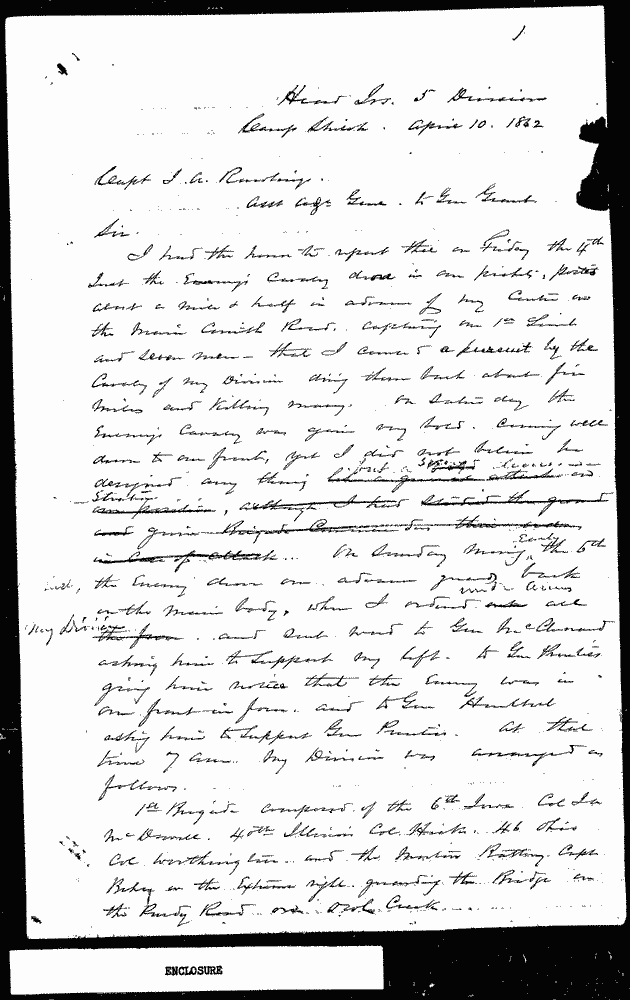 1
Head Qrs. 5 Division
Camp Shiloh. April 10. 1862
Capt J. A. Rawlings.
Asst Adjt Genl. to Gen Grant
Sir.
I had the honor to report that on Friday the 4th
Inst the Enemy's Cavalry drove in our pickets, posted
about a mile & half in advance of my Centre on
the main Corinth Road. capturing one 1st Lieut
and seven men - that I caused a pursuit by the
Cavalry of my Division driving them back about five
miles and killing many. On Saturday the
Enemy's Cavalry was again very bold. coming well
down to our front, yet I did not believe he
but a strong demonstration
designed any thing like a general attack on
our position, although I had studied the ground
and given Brigade Commanders their orders
in Case of attack. On Sunday morning Early, the 6th
inst, the Enemy drove our advance guard back
under arms
on the main body, when I ordered all
my Division
and sent word to Gen McClernand
asking him to Support my left. to Gen Prentiss
giving him notice that the Enemy was in
our front in force. and to Gen Hurlbut
asking him to Support Gen Prentiss. At that
time 7 am. my Division was arranged as
follows.
1st Brigade composed of the 6th Iowa Col J A
McDowell. 40th Illinois Col Hicks. 46 Ohio
Col Worthington. and the Morton Battery Capt
Behr on the Extreme right guarding the Bridge on
the Purdy Road over Owl Creek.
ENCLOSURE